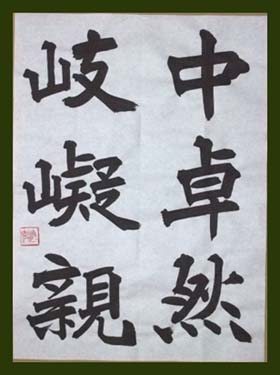 中卓然
岐嶷親